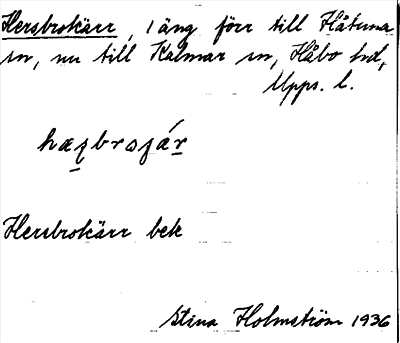 Hersbrokärr, 1 äng förr till Håtuna
sn, nu till Kalmar sn, Håbo hd,
Upps. l.
Hersbrokärr bek
Stina Holmström 1936